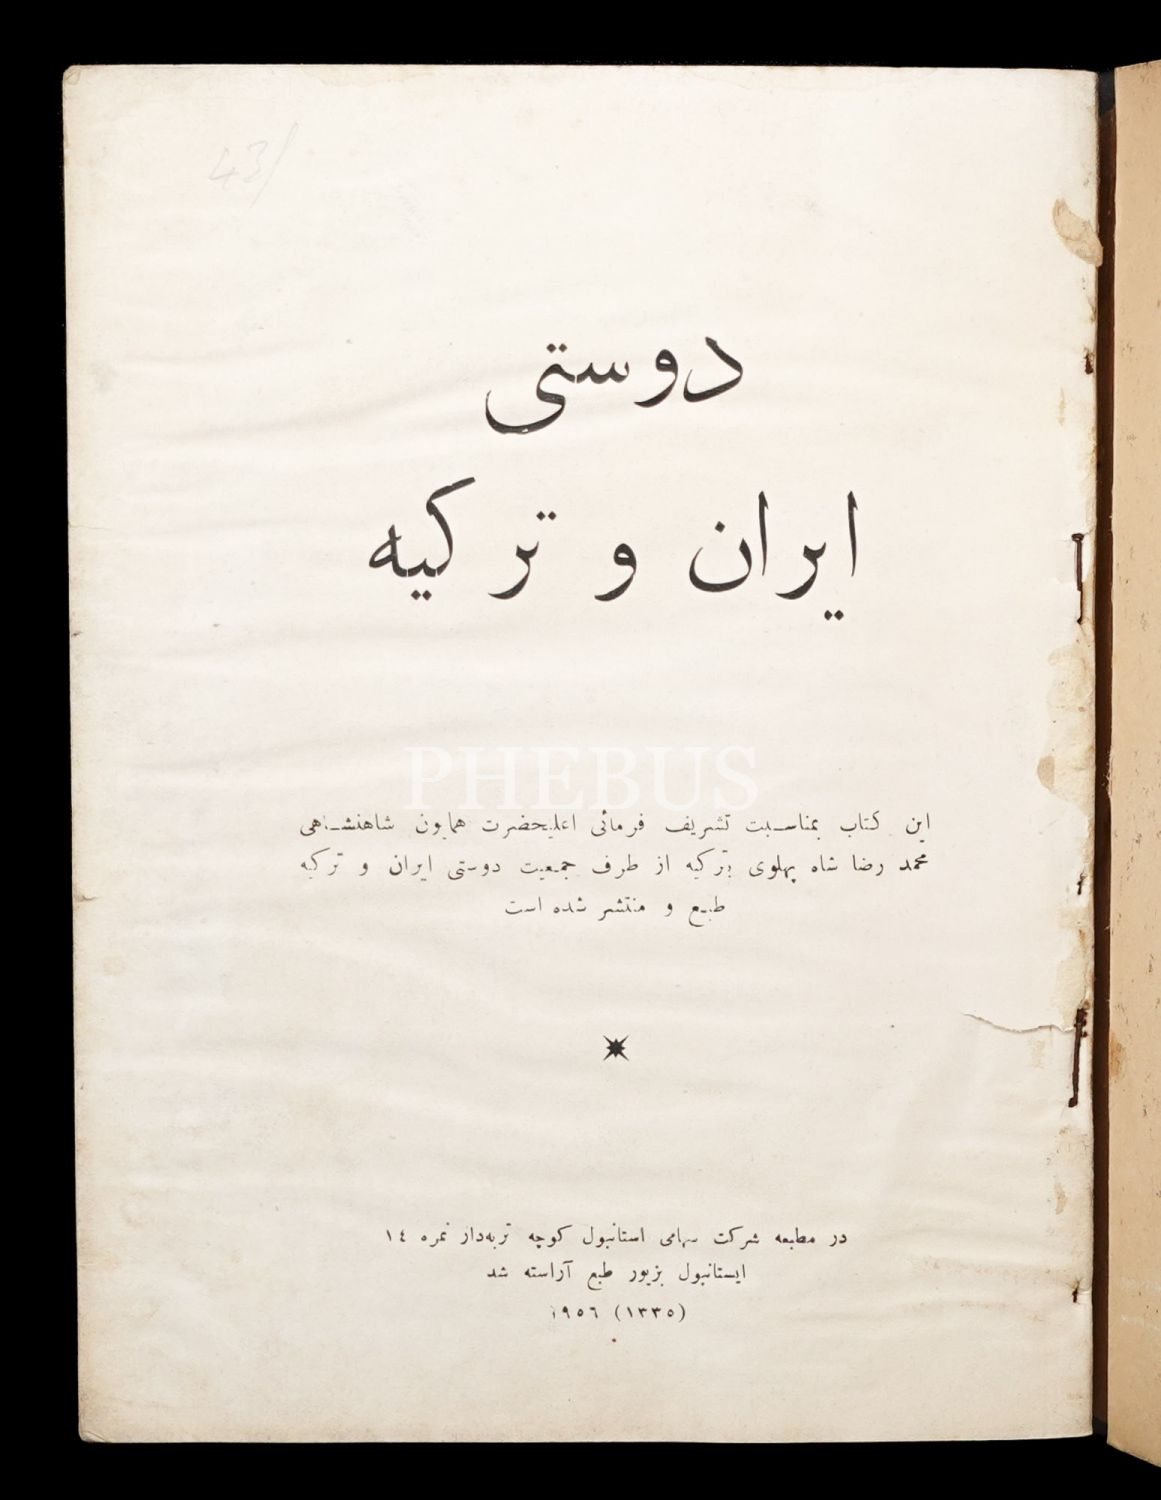 43/
دوستی
ایران و ترکیه
PHEBUS
این کتاب بمناسبت تشریف فرمائی اعلیحضرت همایون شاهنشاهی
محمد رضا شاه پهلوی بترکیه از طرف جمعیت دوستی ایران و ترکیه
طبع و منتشر شده است
در مطبعه شرکت سهامی استانبول کوچه تربه‌دار نمره ١٤
ایستانبول بزیور طبع آراسته شد
(١٣٣٥) ١٩٥٦